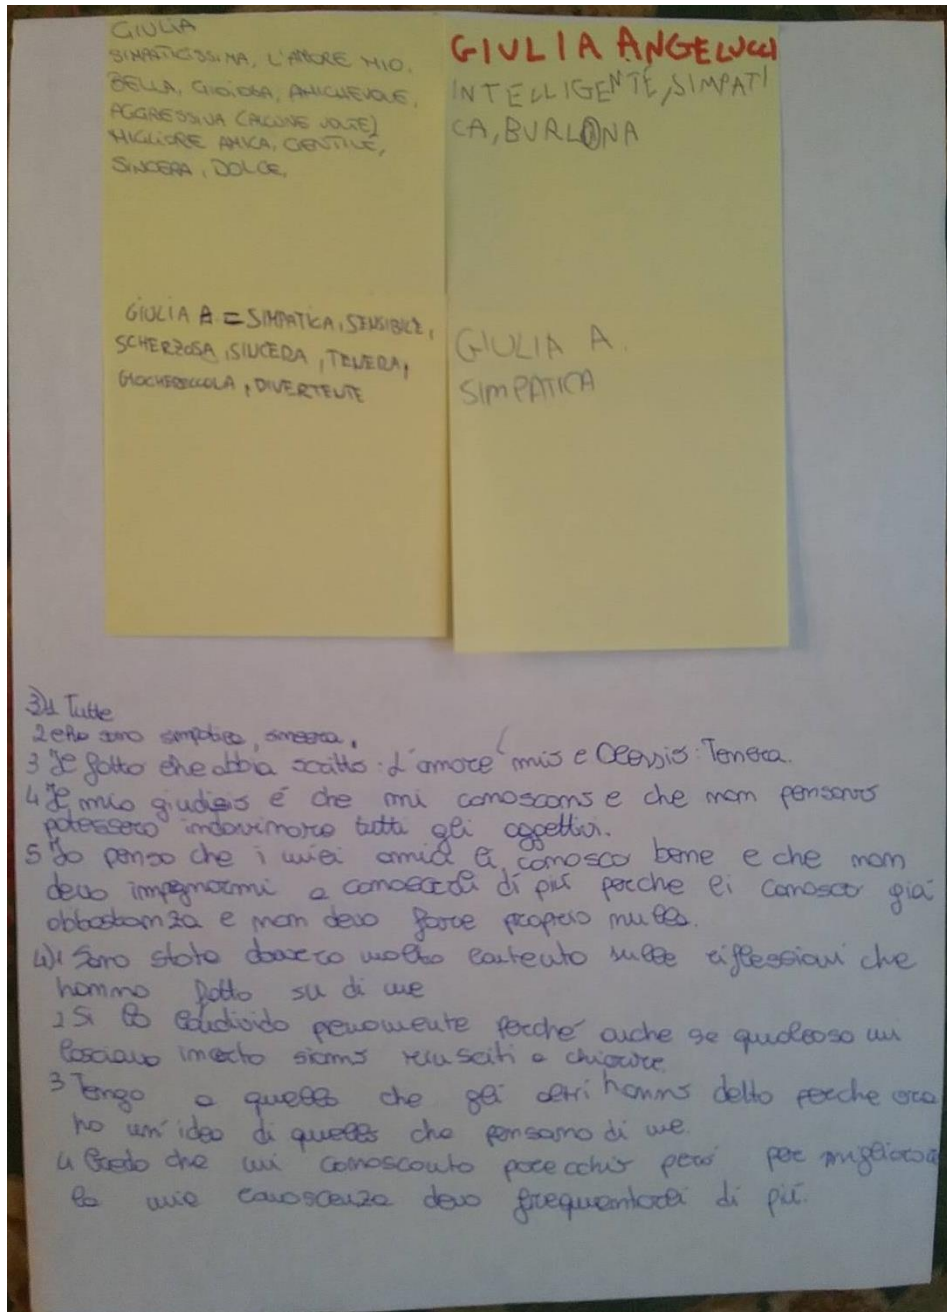 GIULIA
SIMPATICISSIMA, L'AMORE MIO,
BELLA, GIOIOSA, AMICHEVOLE,
AGGRESSIVA (ALCUNE VOLTE)
MIGLIORE AMICA, GENTILE,
SINCERA, DOLCE,
GIULIA ANGELUCCI
INTELLIGENTE, SIMPATI
CA, BURLONA
GIULIA A = SIMPATICA, SENSIBILE,
SCHERZOSA, SINCERA, TENERA,
GIOCHERELLONA, DIVERTENTE
GIULIA A.
SIMPATICA
3)1 Tutte
2 che sono simpatica, sincera.
3 Il fatto che abbia scritto: L'amore mio e Alessio: Tenera.
4 Il mio giudizio é che mi conoscono e che non pensavo
potessero indovinare tutti gli aggettivi.
5 Io penso che i miei amici li conosco bene e che non
devo impegnarmi a conoscerli di piú perche li conosco giá
abbastanza e non devo fare proprio nulla.
4)1 Sono stata davvero molto contenta sulle riflessioni che
hanno fatto su di me
2 Si lo condivido pienamente perché anche se qualcosa mi
lasciava incerto siamo riusciti a chiarire.
3 Tengo a quello che gli altri hanno detto perche ora
ho un'idea di quello che pensano di me.
4 Credo che mi conoscono parecchio peró per migliorare
la mia conoscenza devo frequentarli di piú.